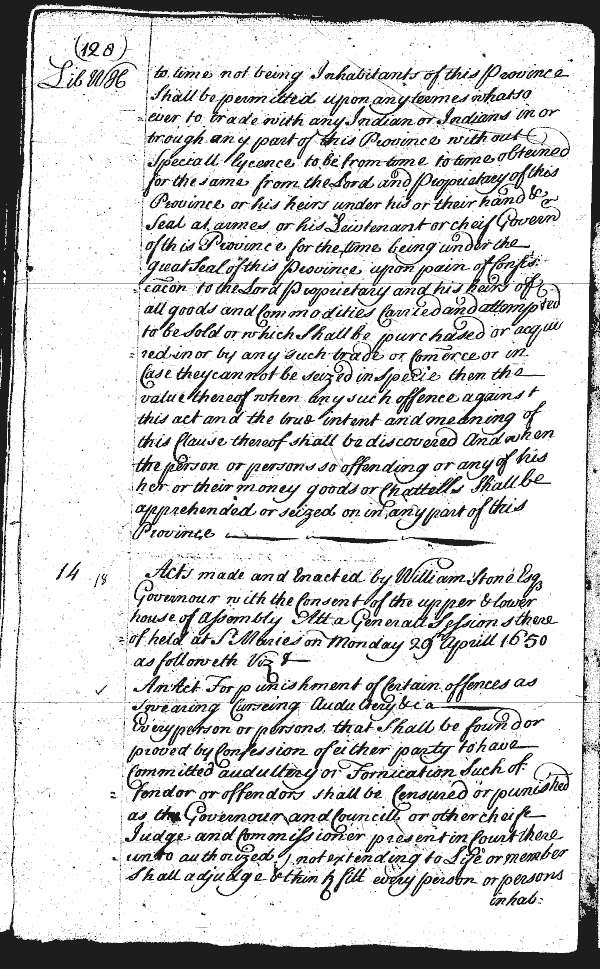 (128)
Lib WH
to time not being Inhabitants of this Province
Shall be permitted upon any termes whatso
ever to trade with any Indian or Indians in or
trough any part of this Province without
Speciall lycence to be from time to time obteined
for the same from the Lord and Proprietary of this
Province or his heirs under his or their hand &
Seal at armes or his Leivtenant or cheif Govern
of this Province for the time being under the
great Seal of this Province upon pain of Confis:
=cacon to the Lord Proprietary and his heirs off
all goods and Commodities Carried and attempted
to be Sold or which Shall be purchased or acqui
=red in or by any such trade or Comerce or in
Case they cannot be seized in Specie then the
value thereof when any such offence against
this act and the true intent and meaning of
this Clause thereof shall be discovered And when
the person or persons so offending or any of his
her or their money goods or Chattells Shall be
apprehended or seized on in any part of this
Province
14 18 Acts made and Enacted by William Stone Esqr
Governour with the Consent of the upper & lower
house of Assembly Att a Generall Sessions there
=of held at St Maries on Monday 29th Aprill 1650
as followeth Vizt
An Act For punishment of Certain offences as
Swearing Curseing Audultery &ca
Every person or persons that Shall be found or
proved by Confession of either party to have
Committed audultery or Fornication Such of
=fendor or offendors shall be Censured or punished
as the Governour and Councill or other cheife
Judge and Commissioner present in Court there
=unto authorized, not extending to Life or member
Shall adjudge & think fitt every person or persons
inhab: